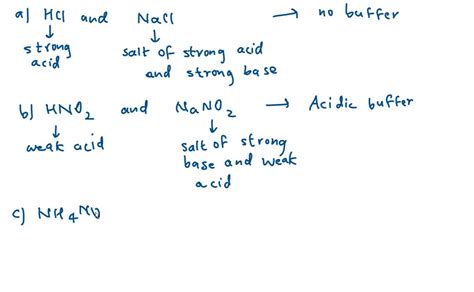 a) HCl and NaCl → no buffer
↓ ↓
strong acid salt of strong acid and strong base
b) HNO2 and NaNO2 → Acidic buffer
↓ ↓
weak acid salt of strong base and weak acid
c) NH4NO